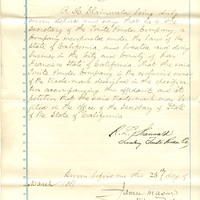 being duly
sworn deposes and says that he is the
Secretary of the Tonite Powder Company, a
Company incorporated under the laws of the
State of California, and located and doing
business in the City and County of San
Francisco State of California that the said
Tonite Powder Company is the rightful owner
of the Trade-mark described in the
accompanying this affidavit and
petition that the said Trademark may be
filed in the office of the Secretary of State
of the State of California
Secretary Tonite Powder Co
Sworn before me this 28th day of
March
James Mason